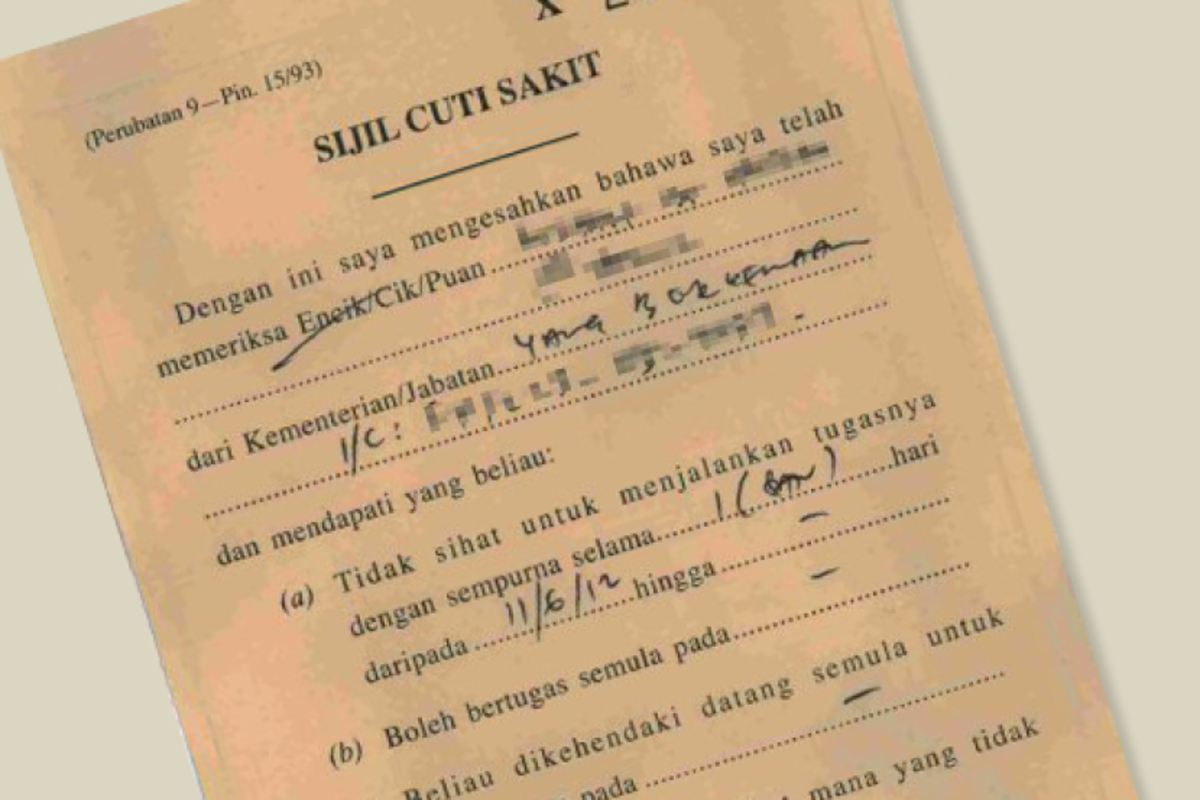 (Perubatan 9—Pin. 15/93)
SIJIL CUTI SAKIT
Dengan ini saya mengesahkan bahawa saya telah
memeriksa Encik/Cik/Puan
dari Kementerian/Jabatan YANG BERKENAAN
I/C:
dan mendapati yang beliau:
(a) Tidak sihat untuk menjalankan tugasnya
dengan sempurna selama 1 (SATU) hari
daripada 11/6/12 hingga –
(b) Boleh bertugas semula pada –
Beliau dikehendaki datang semula untuk
pada –
mana yang tidak